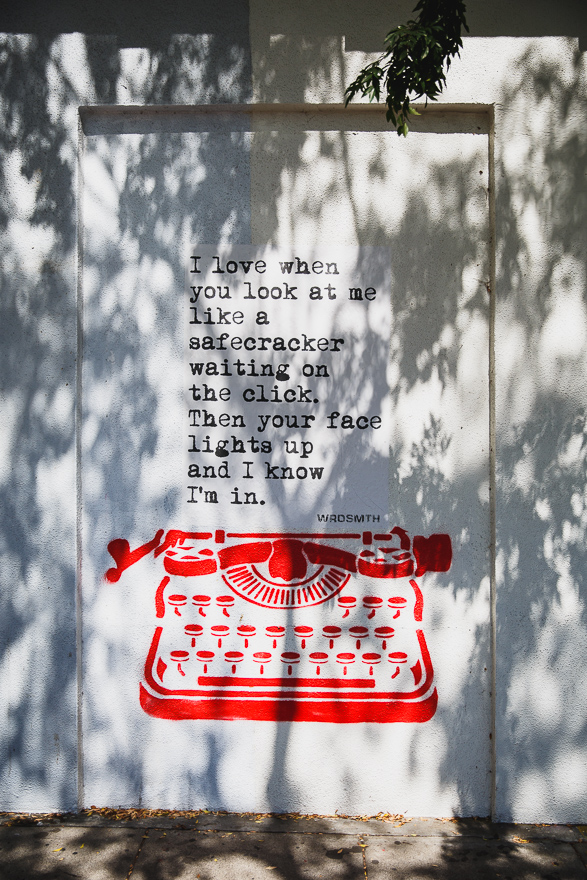 I love when
you look at me
like a
safecracker
waiting on
the click.
Then your face
lights up
and I know
I'm in.
WRDSMTH